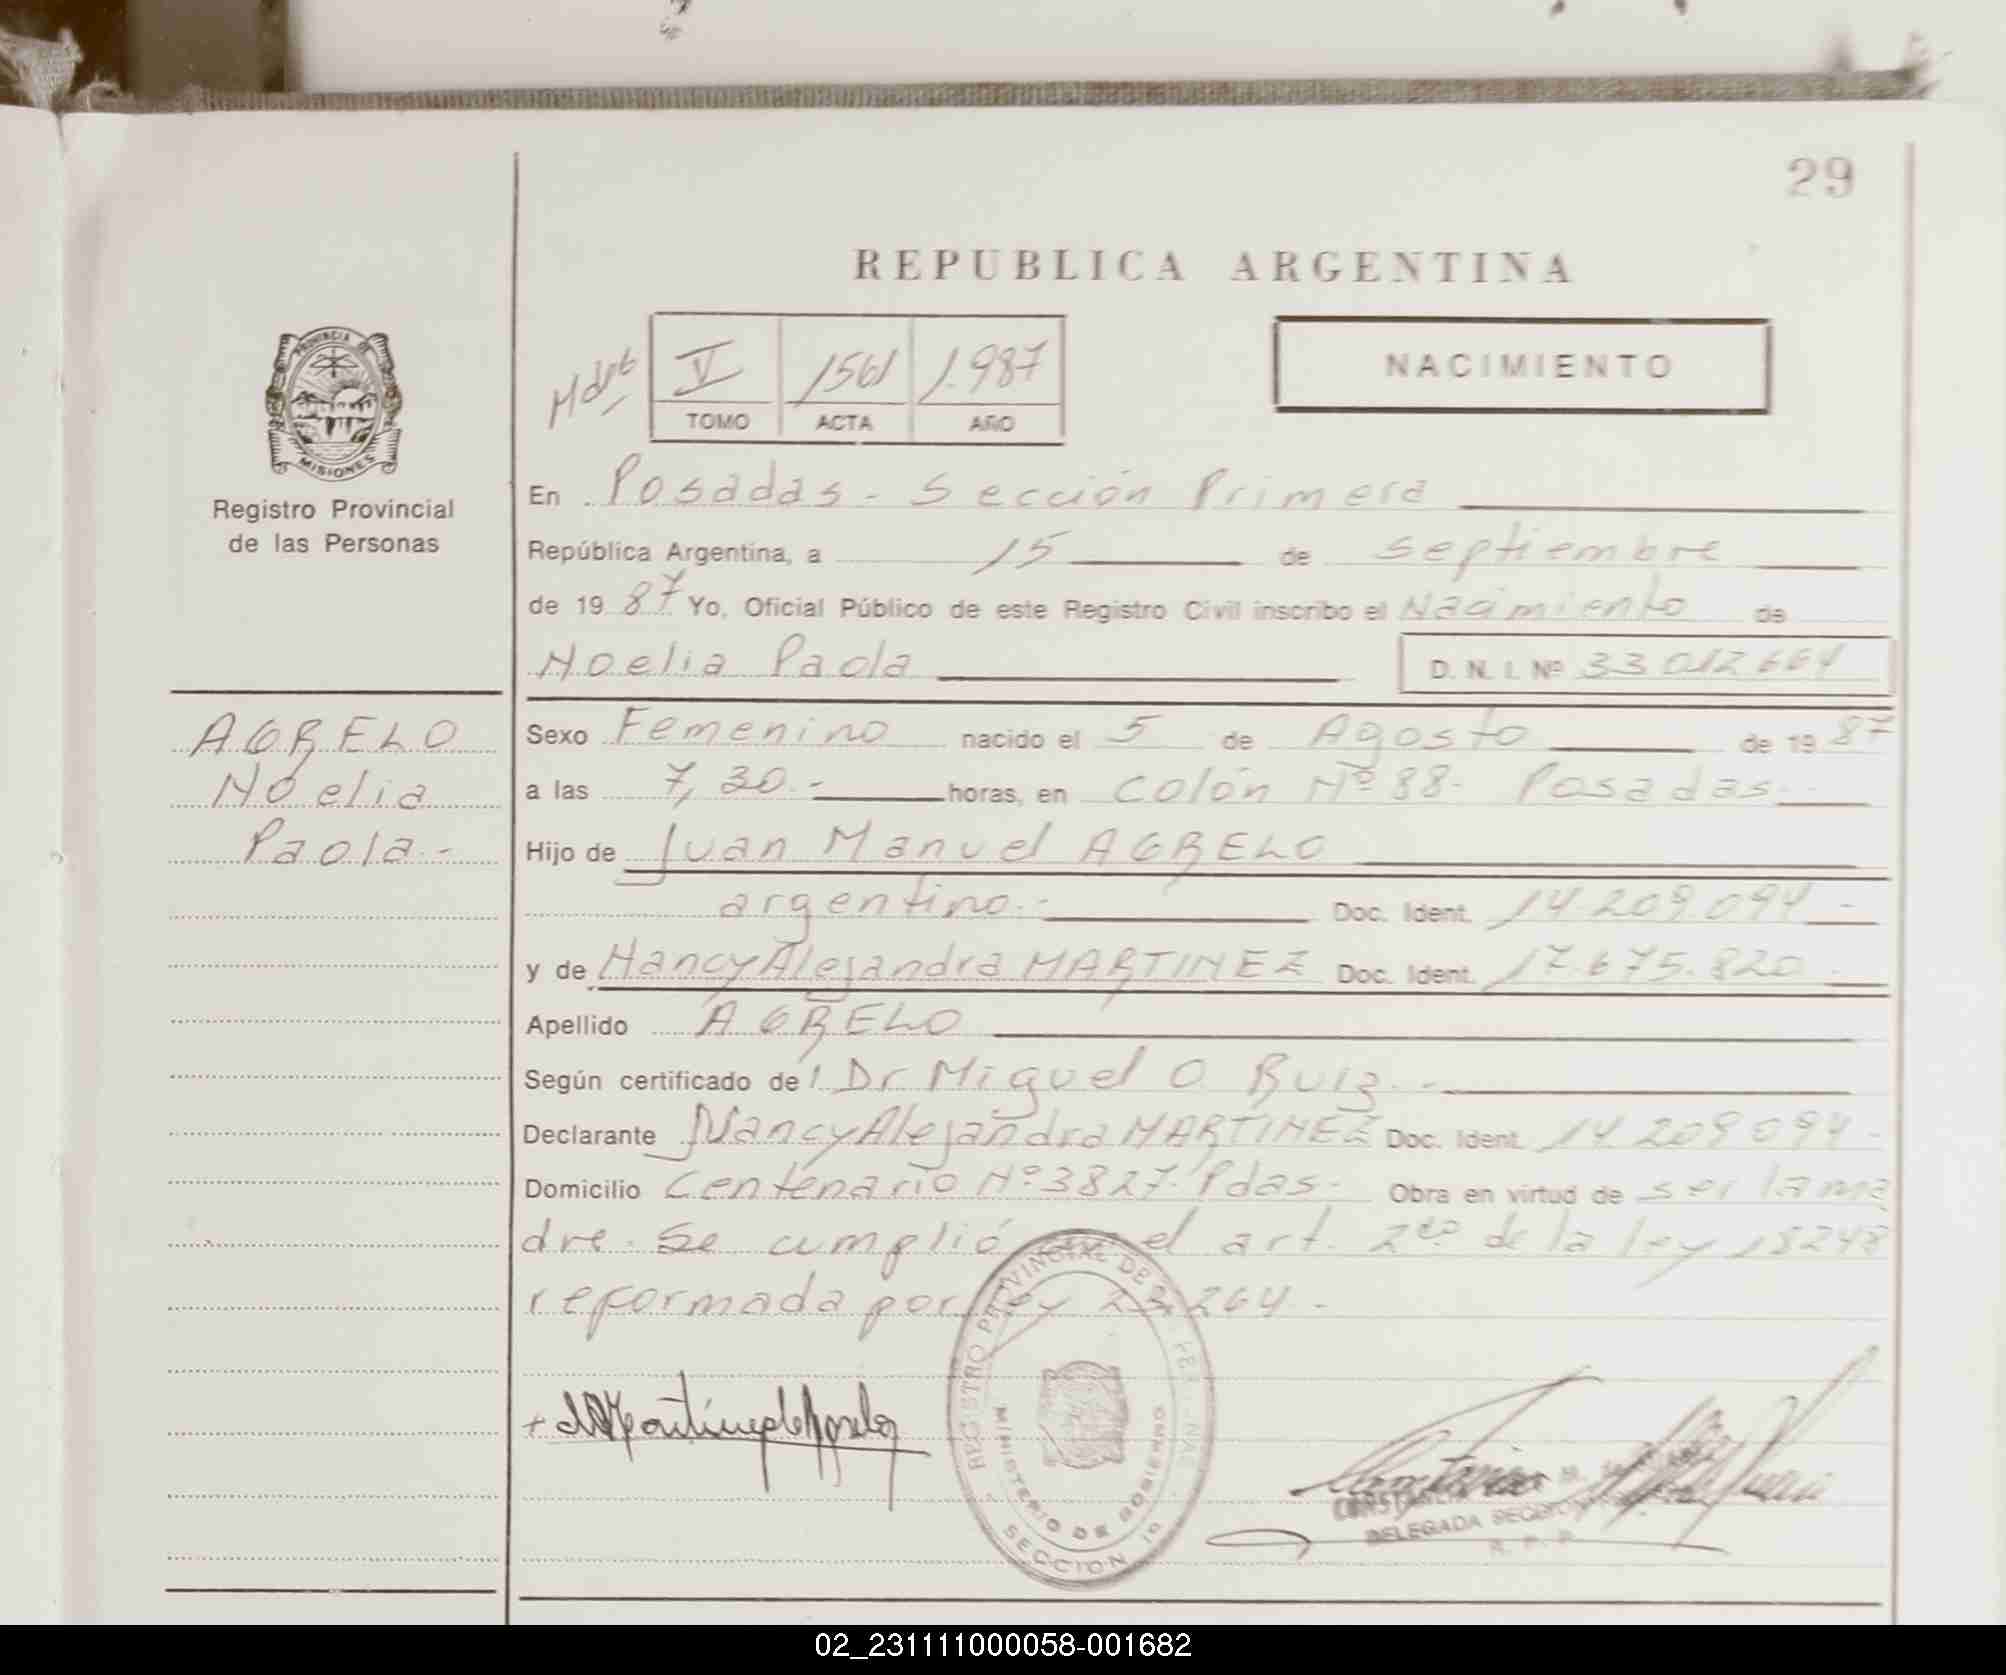 29
REPUBLICA ARGENTINA
NACIMIENTO
V 1561 1.987
TOMO ACTA AÑO
PROVINCIA DE MISIONES
Registro Provincial
de las Personas
AGRELO
Noelia
Paola.-
En Posadas - Sección Primera
República Argentina, a 15 de septiembre
de 19 87 Yo, Oficial Público de este Registro Civil inscribo el Nacimiento de
Noelia Paola D. N. I. Nº 33012664
Sexo Femenino nacido el 5 de Agosto de 19 87
a las 7,30.- horas, en Colón Nº 88- Posadas.
Hijo de Juan Manuel AGRELO
argentino.- Doc. Ident. 14.209.094-
y de Nancy Alejandra MARTINEZ Doc. Ident. 17.675.820
Apellido AGRELO
Según certificado de l Dr Miguel O Ruiz.-
Declarante Nancy Alejandra MARTINEZ Doc. Ident. 14.209.094-
Domicilio Centenario Nº 3827. Pdas- Obra en virtud de ser la ma
dre. Se cumplió el art. 2do de la ley 18248
reformada por ley 23.264.-
REGISTRO PROVINCIAL DE
MINISTERIO DE GOBIERNO
SECCION 1º
DELEGADA
R. P. P.
02_231111000058-001682